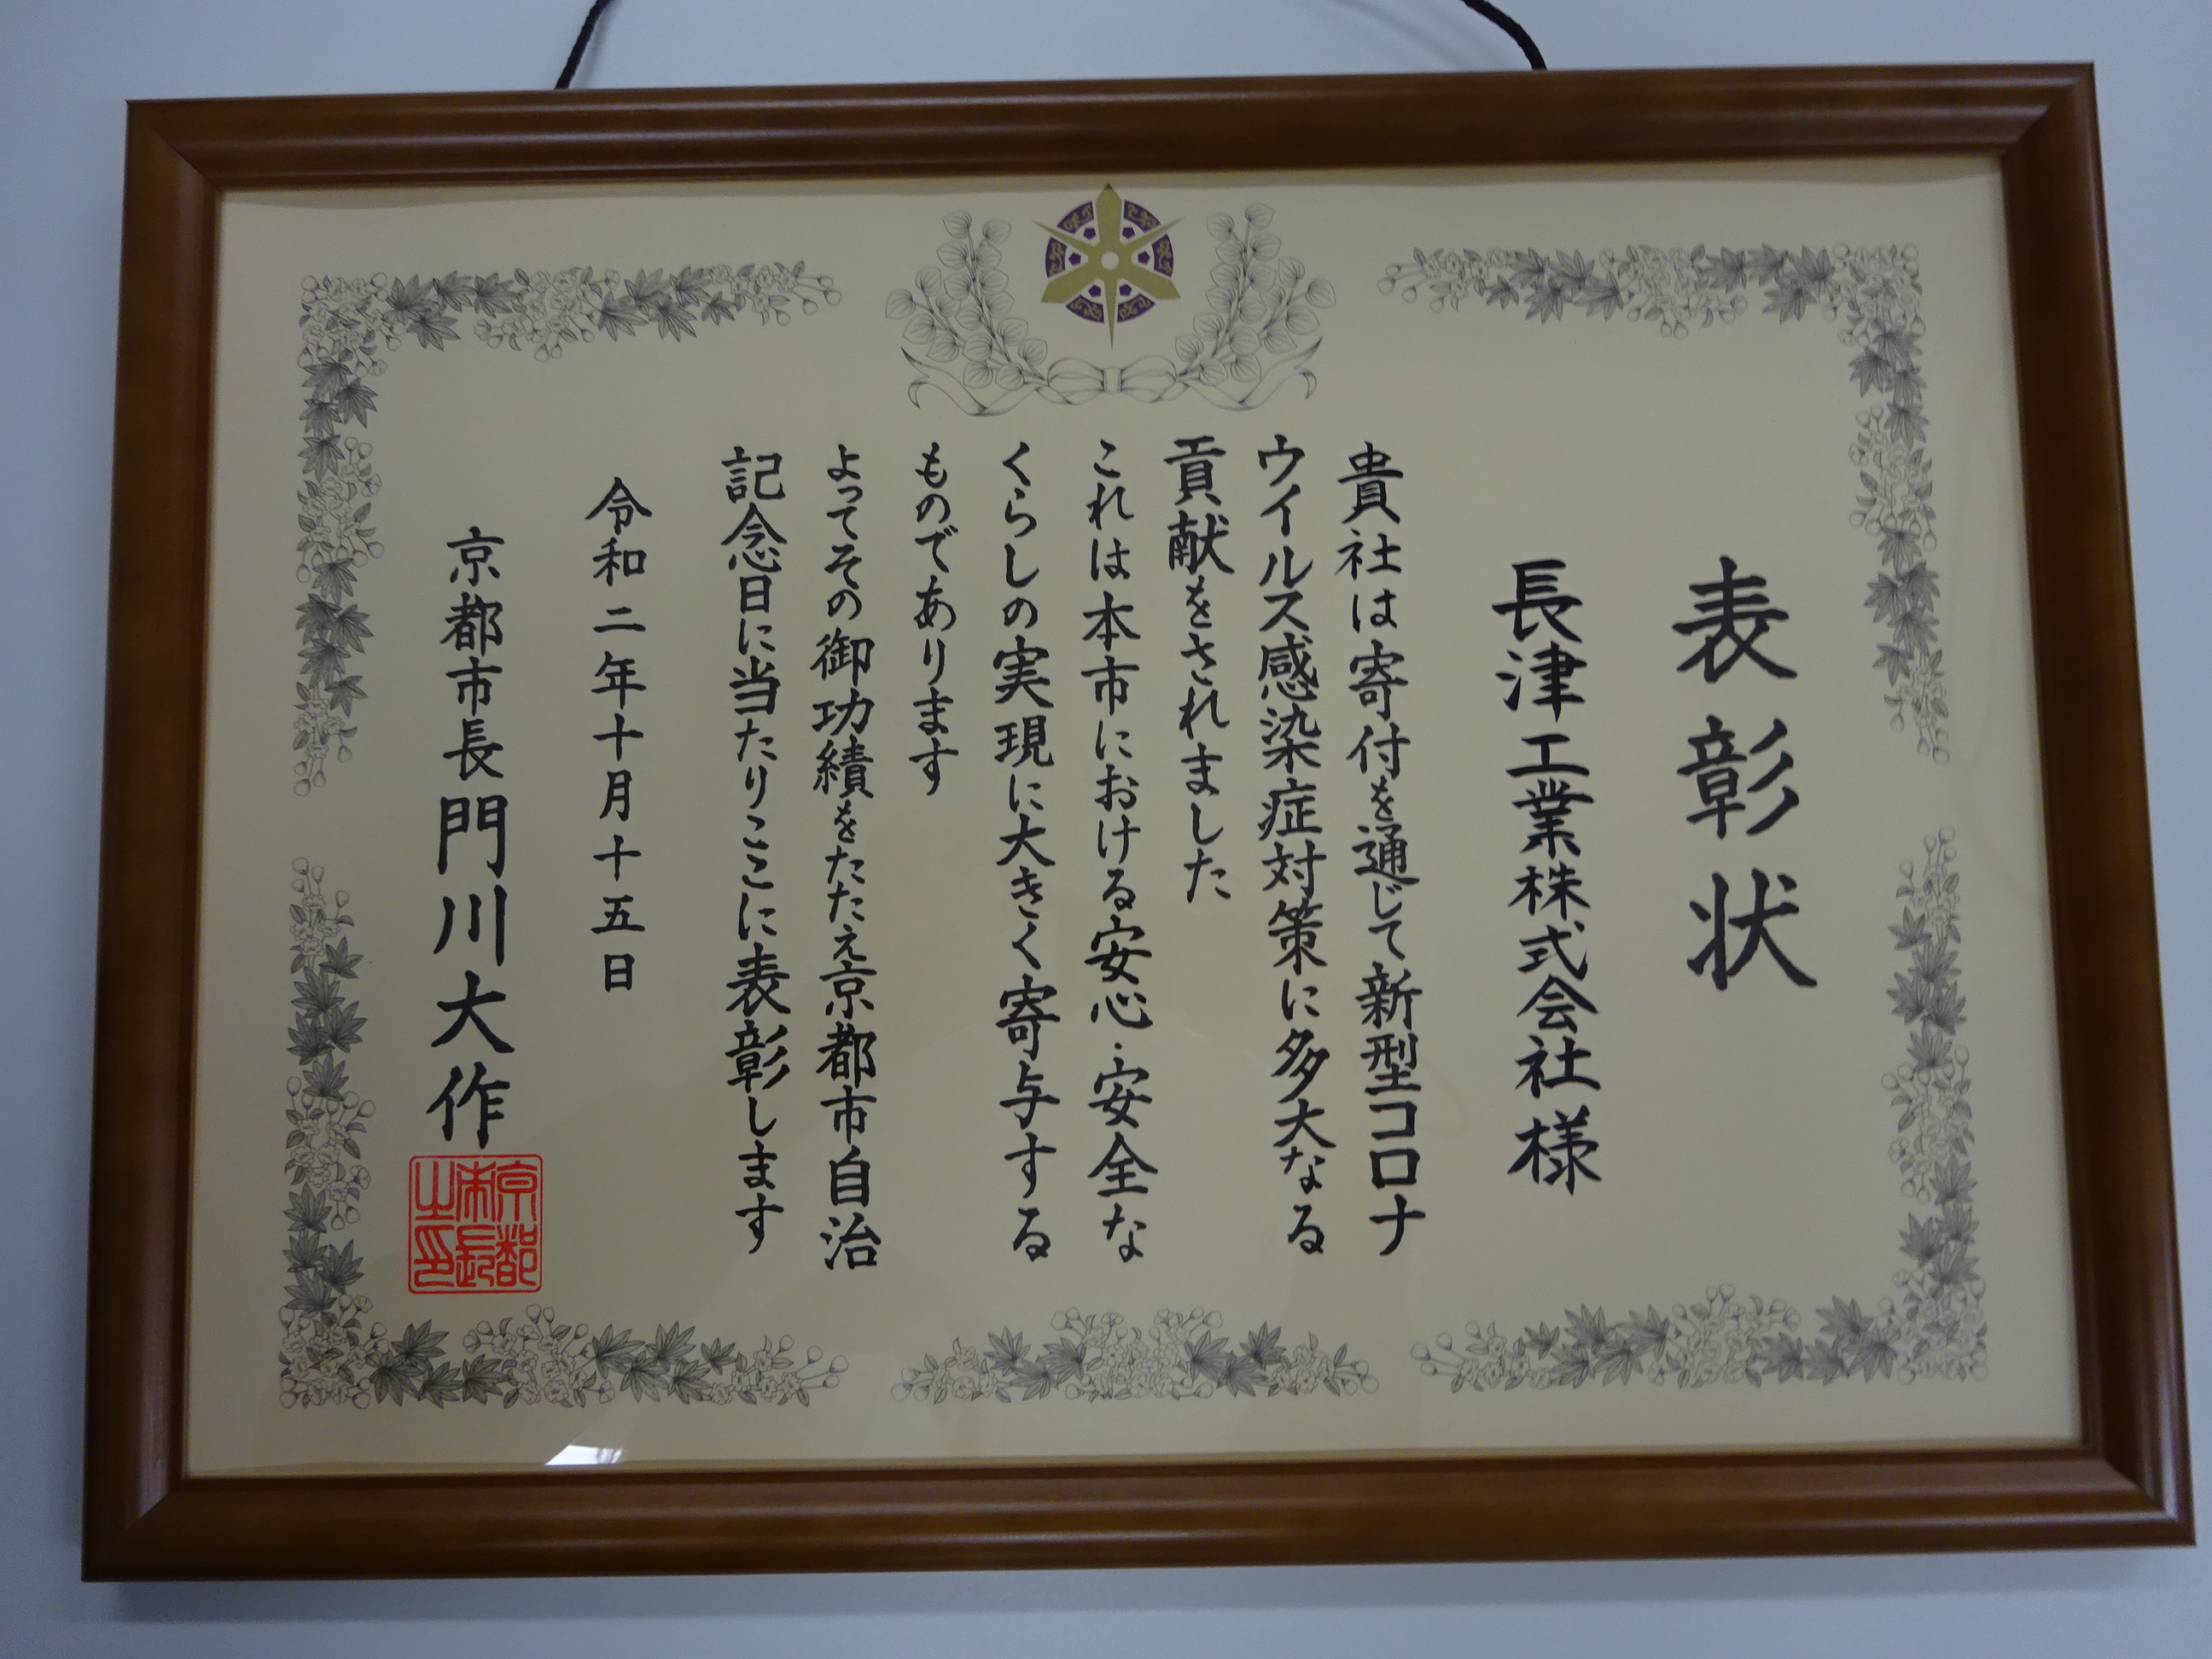 表彰状
長津工業株式会社様
貴社は寄付を通じて新型コロナ
ウイルス感染症対策に多大なる
貢献をされました
これは本市における安心・安全な
くらしの実現に大きく寄与する
ものであります
よってその御功績をたたえ京都市自治
記念日に当たりここに表彰します
令和二年十月十五日
京都市長門川大作
京都
市長
之印